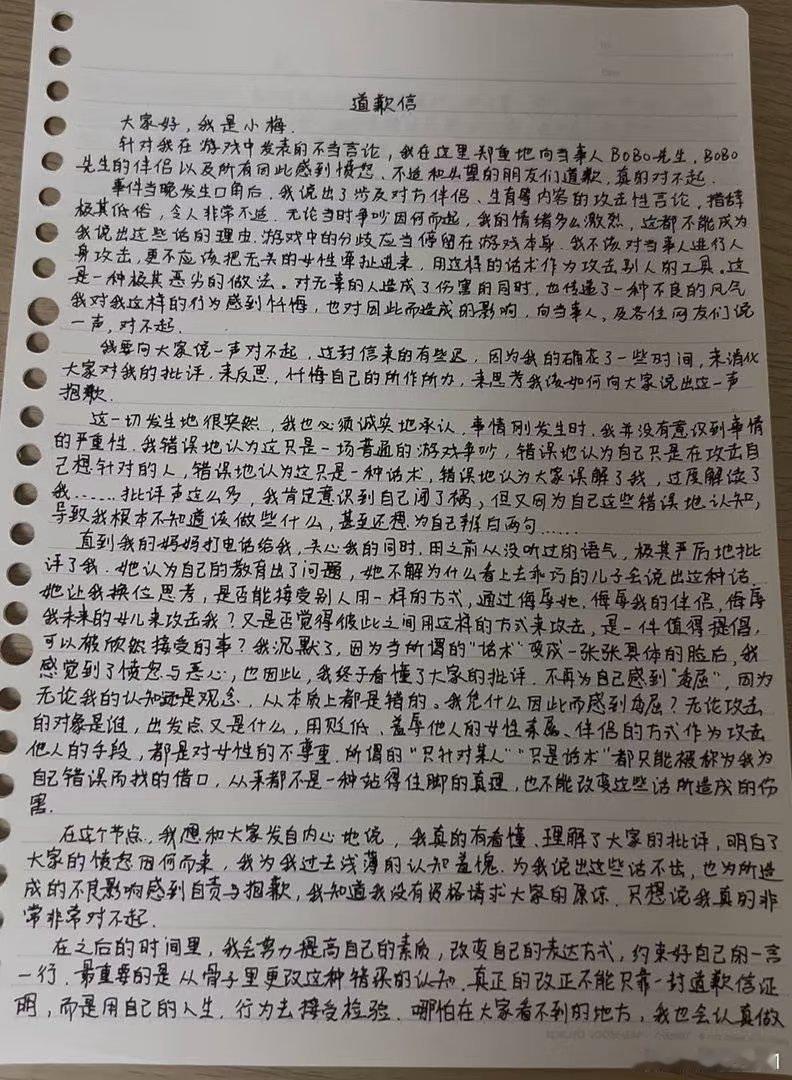 道歉信
大家好，我是小梅.
针对我在游戏中发表的不当言论，我在这里郑重地向当事人BOBO先生，BOBO
先生的伴侣以及所有因此感到愤怒、不适和失望的朋友们道歉，真的对不起.
事件当晚发生口角后，我说出了涉及对方伴侣、生育等内容的攻击性言论，措辞
极其低俗，令人非常不适.无论当时争吵因何而起，我的情绪多么激烈，这都不能成为
我说出这些话的理由.游戏中的分歧应当停留在游戏本身.我不该对当事人进行人
身攻击，更不应该把无关的女性牵扯进来，用这样的话术作为攻击别人的工具.这
是一种极其恶劣的做法。对无辜的人造成了伤害的同时，也传递了一种不良的风气
我对我这样的行为感到忏悔，也对因此而造成的影响，向当事人，及各位网友们说
一声，对不起.
我要向大家说一声对不起，这封信来的有些迟，因为我的确花了一些时间，来消化
大家对我的批评.来反思，忏悔自己的所作所为，来思考我该如何向大家说出这一声
抱歉.
这一切发生地很突然，我也必须诚实地承认.事情刚发生时.我并没有意识到事情
的严重性.我错误地认为这只是一场普通的游戏争吵，错误地认为自己只是在攻击自
己想针对的人，错误地认为这只是一种话术，错误地认为大家误解了我，过度解读了
我……批评声这么多，我肯定意识到自己闯了祸，但又因为自己这些错误地认知，
导致我根本不知道该做些什么，甚至还想为自己辩白两句……
直到我的妈妈打电话给我，关心我的同时.用之前从没听过的语气，极其严厉地批
评了我.她认为自己的教育出了问题，她不解为什么看上去乖巧的儿子会说出这种话.
她让我换位思考，是否能接受别人用一样的方式，通过侮辱她.侮辱我的伴侣，侮辱
我未来的女儿来攻击我？又是否觉得彼此之间用这样的方式来攻击，是一件值得提倡，
可以被欣然接受的事？我沉默了，因为当所谓的"话术"变成一张张具体的脸后，我
感觉到了愤怒与恶心，也因此，我终于看懂了大家的批评.不再为自己感到"委屈"，因为
无论我的认知还是观念.从本质上都是错的。我凭什么因此而感到委屈？无论攻击
的对象是谁，出发点又是什么，用贬低、羞辱他人的女性亲属、伴侣的方式作为攻击
他人的手段，都是对女性的不尊重.所谓的"只针对某人""只是话术"都只能被称为我为
自己错误而找的借口，从来都不是一种站得住脚的真理，也不能改变这些话所造成的伤
害.
在这个节点，我想和大家发自内心地说，我真的有看懂、理解了大家的批评，明白了
大家的愤怒因何而来，我为我过去浅薄的认知羞愧.为我说出这些话不齿，也为所造
成的不良影响感到自责与抱歉，我知道我没有资格请求大家的原谅.只想说我真的非
常非常对不起.
在之后的时间里，我会努力提高自己的素质，改变自己的表达方式，约束好自己的一言
一行.最重要的是从骨子里更改这种错误的认知.真正的改正不能只靠一封道歉信证
明，而是用自己的人生.行为去接受检验.哪怕在大家看不到的地方，我也会认真做
1